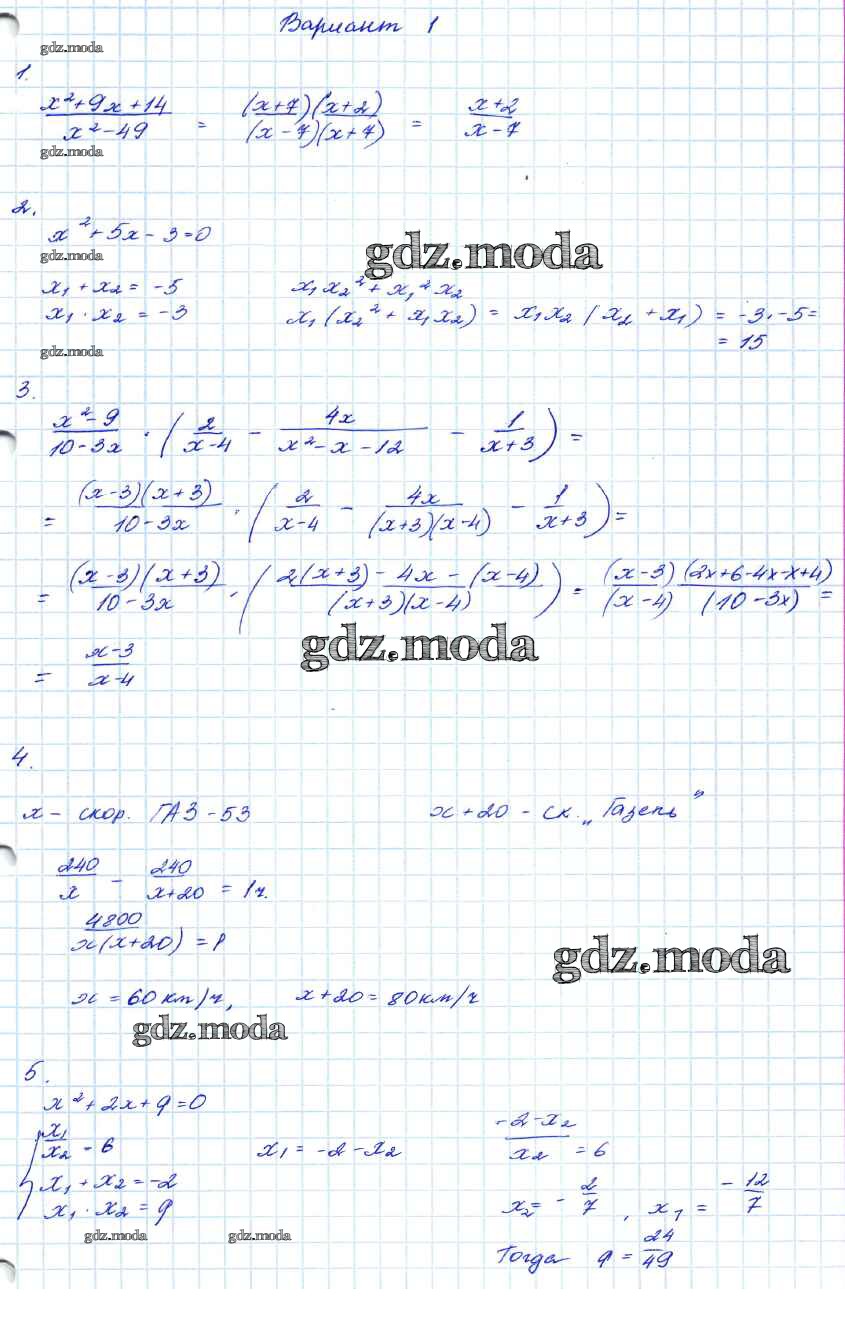 Вариант 1
gdz.moda
1.
(x²+9x+14)/(x²-49) = ((x+7)(x+2))/((x-7)(x+7)) = (x+2)/(x-7)
gdz.moda
2.
x²+5x-3=0
gdz.moda
gdz.moda
x₁+x₂=-5 x₁x₂²+x₁²x₂
x₁·x₂=-3 x₁(x₂²+x₁x₂) = x₁x₂(x₂+x₁) = -3·-5=
=15
gdz.moda
3.
(x²-9)/(10-3x)·(2/(x-4) - 4x/(x²-x-12) - 1/(x+3))=
= ((x-3)(x+3))/(10-3x)·(2/(x-4) - 4x/((x+3)(x-4)) - 1/(x+3))=
= ((x-3)(x+3))/(10-3x)·((2(x+3)-4x-(x-4))/((x+3)(x-4))) = ((x-3)(2x+6-4x-x+4))/((x-4)(10-3x)) =
gdz.moda
= (x-3)/(x-4)
4.
x - скор. ГАЗ-53 x+20 - ск. „Газель"
240/x - 240/(x+20) = 1ч.
4800/(x(x+20)) = 1
gdz.moda
x=60км/ч, x+20=80км/ч
gdz.moda
5.
x²+2x+q=0
x₁/x₂=6 x₁=-2-x₂ (-2-x₂)/x₂=6
x₁+x₂=-2
x₁·x₂=q x₂=-2/7, x₁=-12/7
gdz.moda gdz.moda
Тогда q=24/49